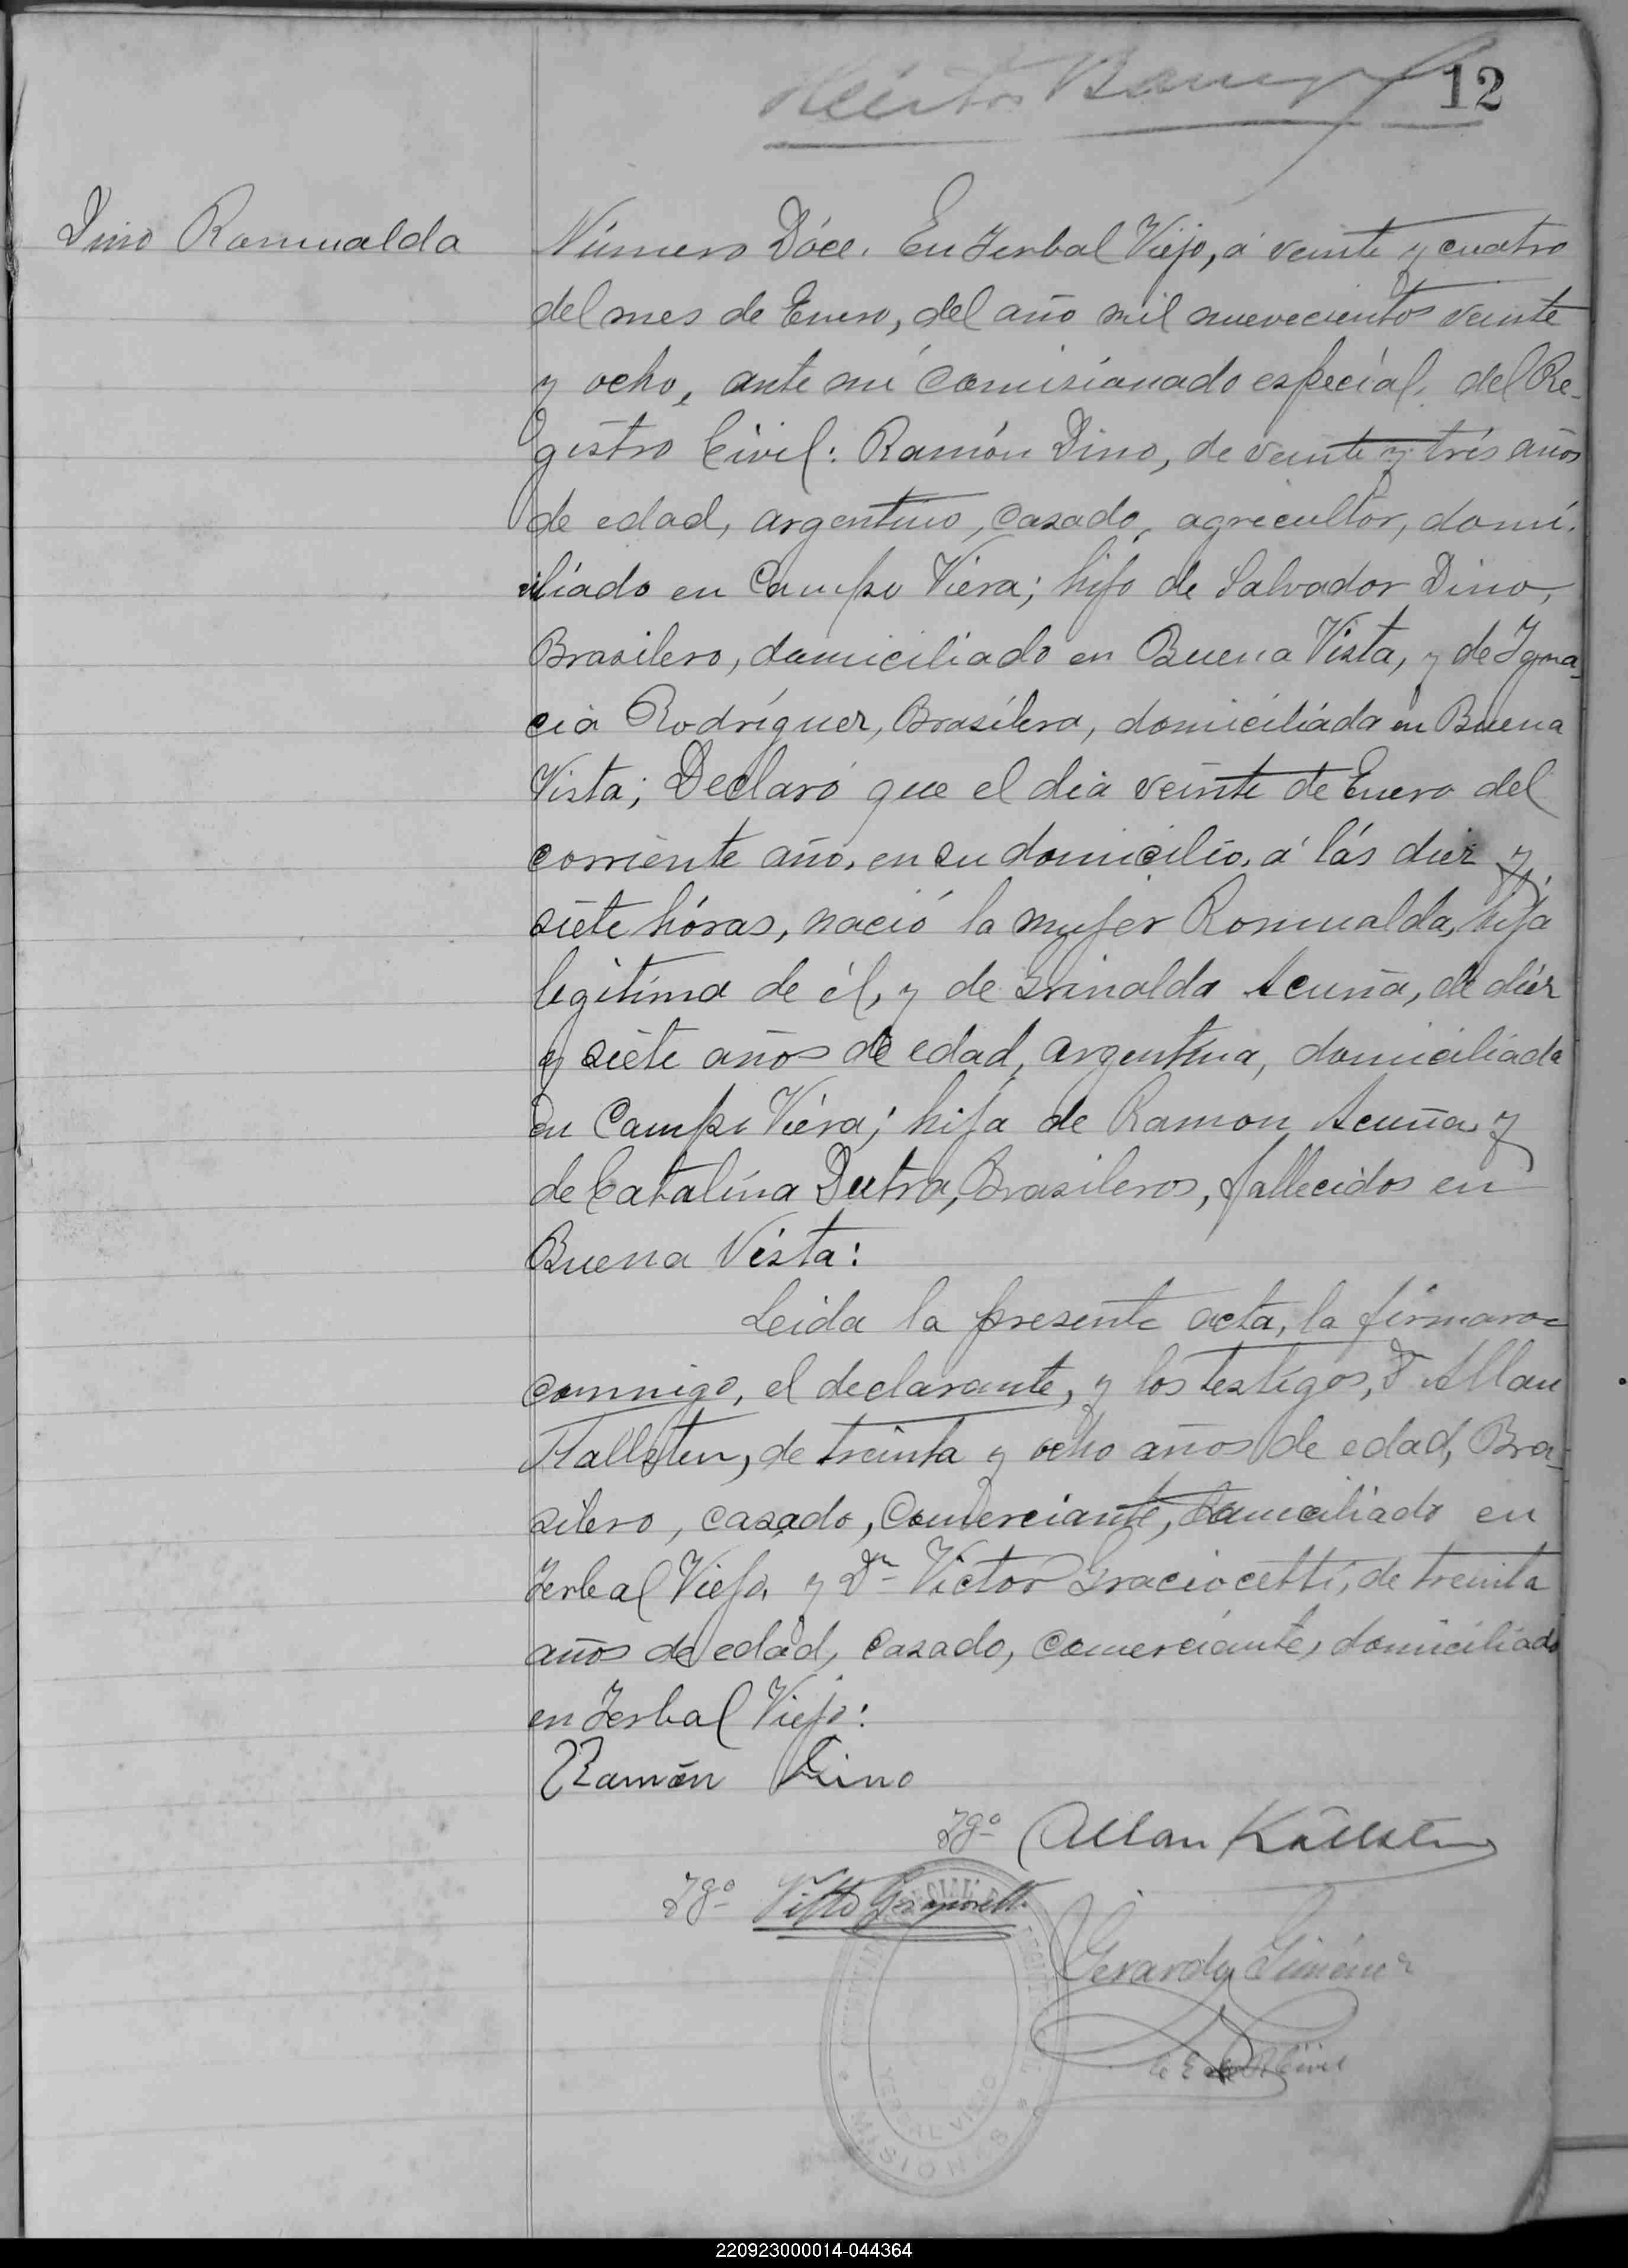 12
Dino Romualda
Número Dóce. En Yerbal Viejo, á veinte y cuatro
del mes de Enero, del año mil nuevecientos veinte
y ocho, ante mi Comisionado especial, del Re-
gistro Civil: Ramón Dino, de veinte y trés años
de edad, argentino, casado, agricultor, domi-
ciliado en Campo Viera; hijo de Salvador Dino,
Brasilero, domiciliado en Buena Vista, y de Igna-
cia Rodríguez, Brasilera, domiciliada en Buena
Vista; Declaró que el dia veinte de Enero del
corriente año, en su domicilio, á las diez y
siete hóras, nació la mujer Romualda, hija
legitima de él, y de Grinalda Acuña, de diez
y siete años de edad, argentina, domiciliada
en Campo Viera; hija de Ramon Acuña y
de Catalina Dutra, Brasileros, fallecidos en
Buena Vista:
Leida la presente acta, la firmaron
conmigo, el declarante, y los testigos, Dn Allan
Kallsten, de treinta y ocho años de edad, Bra-
silero, casado, Comerciante, domiciliado en
Yerbal Viejo, y Dn Victor Graciocetti, de treinta
años de edad, casado, comerciante, domiciliado
en Yerbal Viejo:
Ramón Dino
Tgo Allan Källsten
Tgo
Gerardo Giménez
YERBAL VIEJO
MISIONES
220923000014-044364